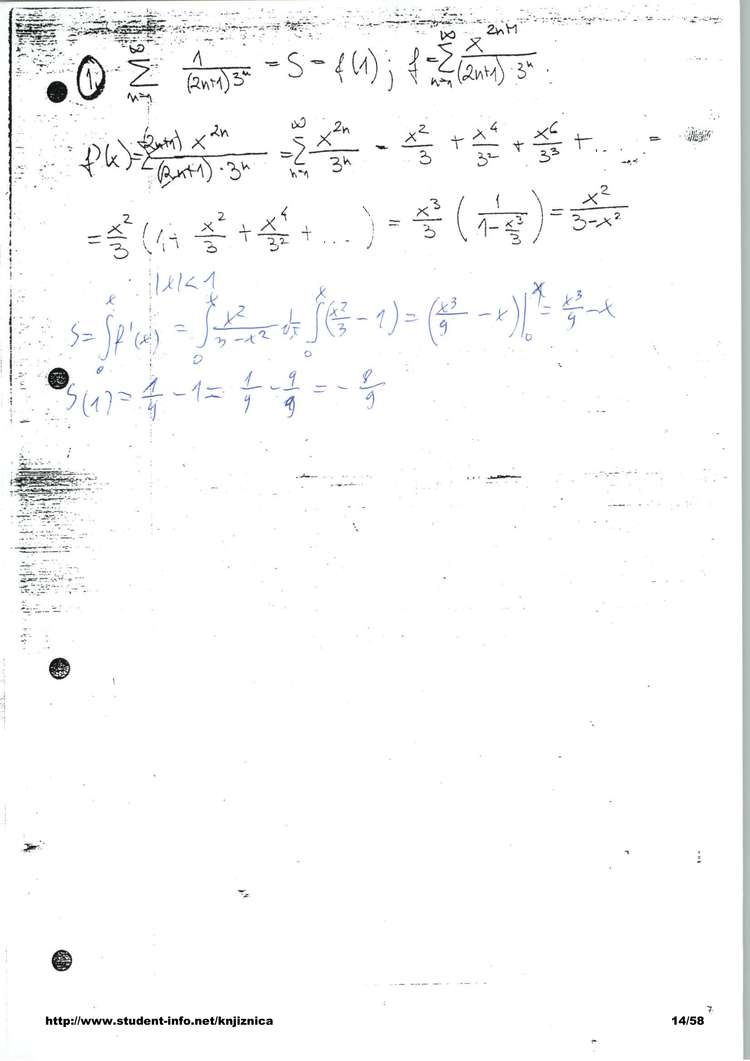 1. ∞∑n=1 1/((2n+1)3ⁿ) = S = f(1); f = ∞∑n=1 x²ⁿ⁺¹/((2n+1)·3ⁿ).
f'(x) = ∑ (2n+1) x²ⁿ/((2n+1)·3ⁿ) = ∞∑n=1 x²ⁿ/3ⁿ = x²/3 + x⁴/3² + x⁶/3³ + .... =
= x²/3 (1 + x²/3 + x⁴/3² + ...) = x³/3 (1/(1-x³/3)) = x²/(3-x²)
|x|<1
S = ∫₀ˣ f'(x) = ∫₀ˣ x²/(3-x²) dx ∫₀ˣ (x²/3 - 1) = (x³/9 - x)|₀ˣ = x³/9 - x
S(1) = 1/9 - 1 = 1/9 - 9/9 = - 8/9
http://www.student-info.net/knjiznica 14/58